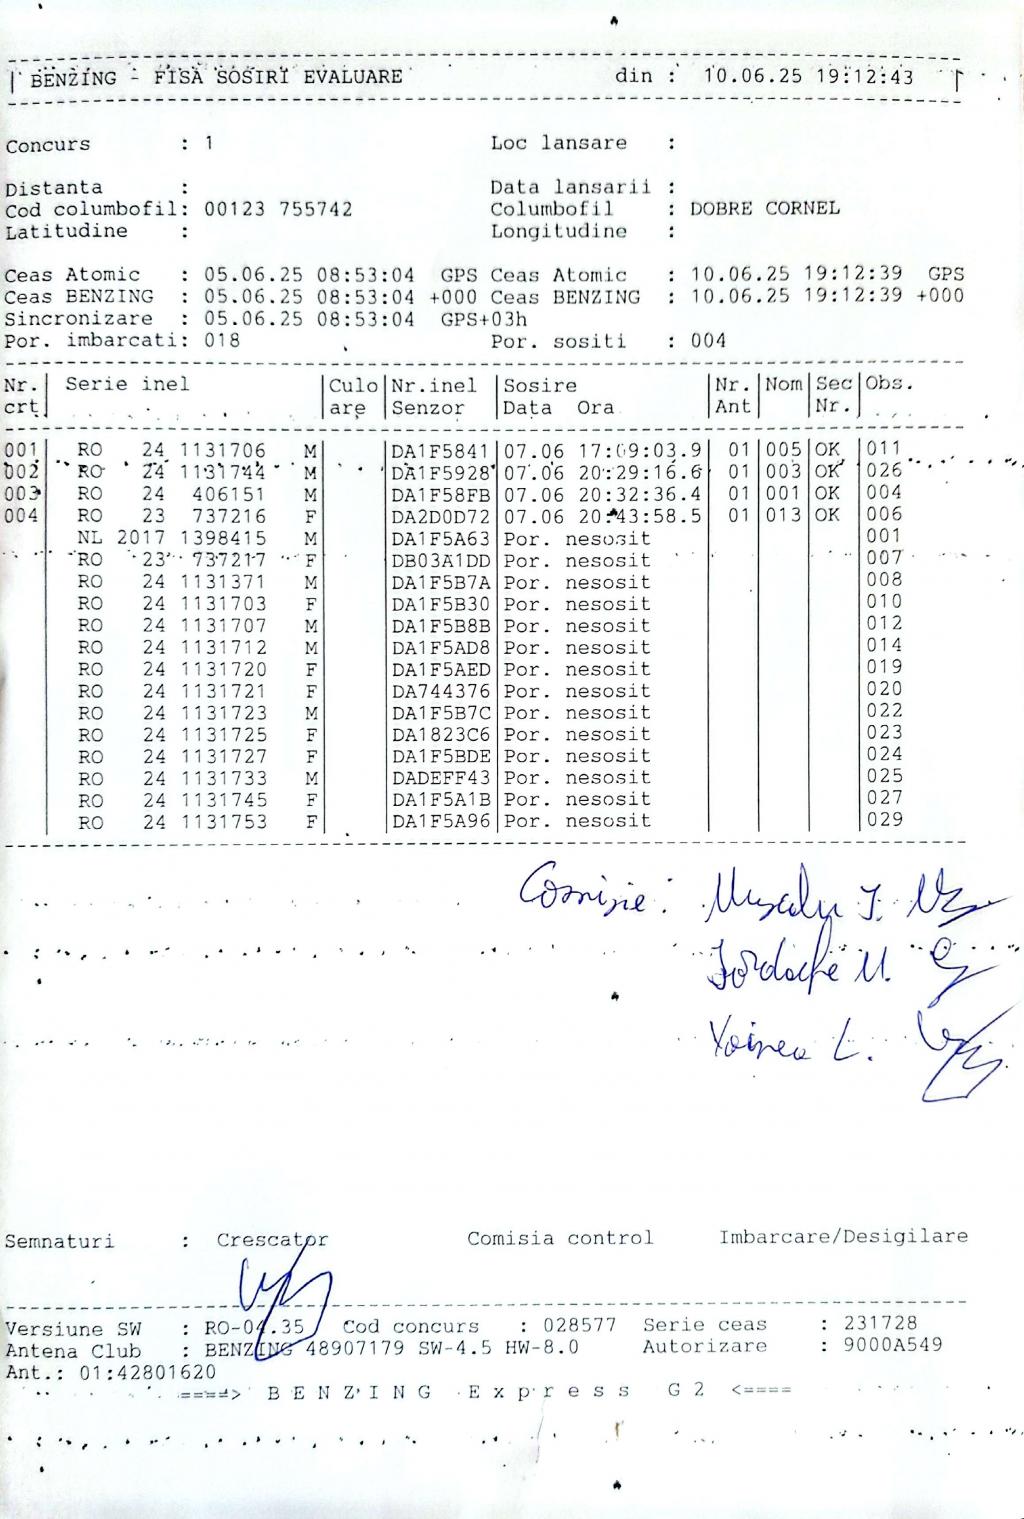 BENZING - FISA SOSIRI EVALUARE din : 10.06.25 19:12:43
Concurs : 1 Loc lansare :
Distanta : Data lansarii :
Cod columbofil: 00123 755742 Columbofil : DOBRE CORNEL
Latitudine : Longitudine :
Ceas Atomic : 05.06.25 08:53:04 GPS Ceas Atomic : 10.06.25 19:12:39 GPS
Ceas BENZING : 05.06.25 08:53:04 +000 Ceas BENZING : 10.06.25 19:12:39 +000
Sincronizare : 05.06.25 08:53:04 GPS+03h
Por. imbarcati: 018 Por. sositi : 004
Nr. Serie inel Culo Nr.inel Sosire Nr. Nom Sec Obs.
crt. are Senzor Data Ora Ant Nr.
001 RO 24 1131706 M DA1F5841 07.06 17:09:03.9 01 005 OK 011
002 RO 24 1131744 M DA1F5928 07.06 20:29:16.6 01 003 OK 026
003 RO 24 406151 M DA1F58FB 07.06 20:32:36.4 01 001 OK 004
004 RO 23 737216 F DA2D0D72 07.06 20:43:58.5 01 013 OK 006
NL 2017 1398415 M DA1F5A63 Por. nesosit 001
RO 23 737217 F DB03A1DD Por. nesosit 007
RO 24 1131371 M DA1F5B7A Por. nesosit 008
RO 24 1131703 F DA1F5B30 Por. nesosit 010
RO 24 1131707 M DA1F5B8B Por. nesosit 012
RO 24 1131712 M DA1F5AD8 Por. nesosit 014
RO 24 1131720 F DA1F5AED Por. nesosit 019
RO 24 1131721 F DA744376 Por. nesosit 020
RO 24 1131723 M DA1F5B7C Por. nesosit 022
RO 24 1131725 F DA1823C6 Por. nesosit 023
RO 24 1131727 F DA1F5BDE Por. nesosit 024
RO 24 1131733 M DADEFF43 Por. nesosit 025
RO 24 1131745 F DA1F5A1B Por. nesosit 027
RO 24 1131753 F DA1F5A96 Por. nesosit 029
Comisie: Muscalu I.
Iordache M.
Voinea L.
Semnaturi : Crescator Comisia control Imbarcare/Desigilare
Versiune SW : RO-04.35 Cod concurs : 028577 Serie ceas : 231728
Antena Club : BENZING 48907179 SW-4.5 HW-8.0 Autorizare : 9000A549
Ant.: 01:42801620
====> B E N Z I N G E x p r e s s G 2 <====